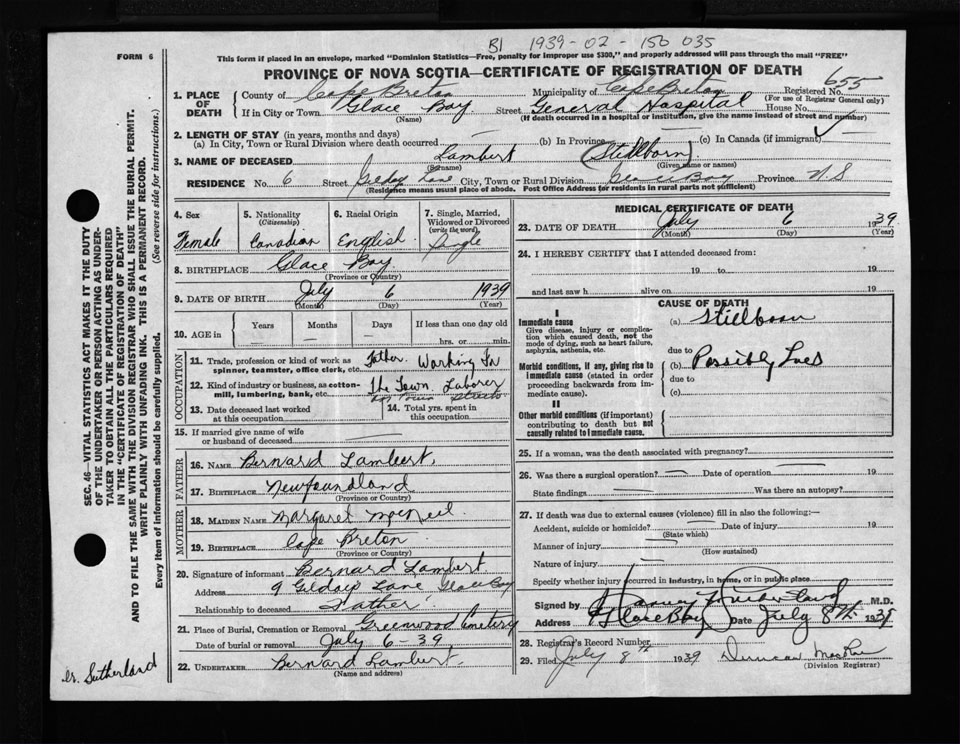 B1 1939-02-150 035
FORM 6
This form if placed in an envelope, marked "Dominion Statistics—Free, penalty for improper use $300," and properly addressed will pass through the mail "FREE"
PROVINCE OF NOVA SCOTIA—CERTIFICATE OF REGISTRATION OF DEATH
655
1. PLACE OF DEATH
County of Cape Breton Municipality of Cape Breton Registered No.
(For use of Registrar General only)
If in City or Town Glace Bay Street General Hospital House No.
(Name) (If death occurred in a hospital or institution, give the name instead of street and number)
2. LENGTH OF STAY (in years, months and days)
(a) In City, Town or Rural Division where death occurred (b) In Province (c) In Canada (if immigrant)
3. NAME OF DECEASED Lambert (Stillborn)
(Surname) (Given name or names)
RESIDENCE No. 6 Street Lane City, Town or Rural Division Glace Bay Province N.S
(Residence means usual place of abode. Post Office Address for residents in rural parts not sufficient)
4. Sex
Female
5. Nationality
(Citizenship)
Canadian
6. Racial Origin
English
7. Single, Married, Widowed or Divorced
(write the word)
Single
8. BIRTHPLACE Glace Bay
(Province or Country)
9. DATE OF BIRTH July 6 1939
(Month) (Day) (Year)
10. AGE in
Years Months Days If less than one day old
hrs. or min.
OCCUPATION
11. Trade, profession or kind of work as spinner, teamster, office clerk, etc. Father. Working for
12. Kind of industry or business, as cotton-mill, lumbering, bank, etc. The Town. Laborer
13. Date deceased last worked at this occupation
14. Total yrs. spent in this occupation
15. If married give name of wife or husband of deceased
FATHER
16. NAME Bernard Lambert
17. BIRTHPLACE Newfoundland
(Province or Country)
MOTHER
18. MAIDEN NAME Margaret MacNeil
19. BIRTHPLACE Cape Breton
(Province or Country)
20. Signature of informant Bernard Lambert
Address 9 Lane Glace Bay
Relationship to deceased Father
21. Place of Burial, Cremation or Removal Greenwood Cemetery
Date of burial or removal July 6-39
22. UNDERTAKER Bernard Lambert
(Name and address)
MEDICAL CERTIFICATE OF DEATH
23. DATE OF DEATH July 6 1939
(Month) (Day) (Year)
24. I HEREBY CERTIFY that I attended deceased from:
19 to 19
and last saw h alive on 19
CAUSE OF DEATH
I
Immediate cause
Give disease, injury or complication which caused death, not the mode of dying, such as heart failure, asphyxia, asthenia, etc.
(a) Stillborn
due to
Morbid conditions, if any, giving rise to immediate cause (stated in order proceeding backwards from immediate cause).
(b) Possibly Lues
due to
(c)
II
Other morbid conditions (if important) contributing to death but not causally related to immediate cause.
25. If a woman, was the death associated with pregnancy?
26. Was there a surgical operation? Date of operation 19
State findings Was there an autopsy?
27. If death was due to external causes (violence) fill in also the following:—
Accident, suicide or homicide? Date of injury 19
(State which)
Manner of injury
(How sustained)
Nature of injury
Specify whether injury occurred in industry, in home, or in public place
Signed by M.D.
Address Glace Bay Date July 8th 1939
28. Registrar's Record Number
29. Filed July 8th 1939 Duncan MacRae
(Division Registrar)
SEC. 46—VITAL STATISTICS ACT MAKES IT THE DUTY OF THE UNDERTAKER OR PERSON ACTING AS UNDERTAKER TO OBTAIN ALL THE PARTICULARS REQUIRED IN THE "CERTIFICATE OF REGISTRATION OF DEATH" AND TO FILE THE SAME WITH THE DIVISION REGISTRAR WHO SHALL ISSUE THE BURIAL PERMIT.
WRITE PLAINLY WITH UNFADING INK. THIS IS A PERMANENT RECORD.
Every item of information should be carefully supplied. (See reverse side for instructions.)
Dr. Sutherland